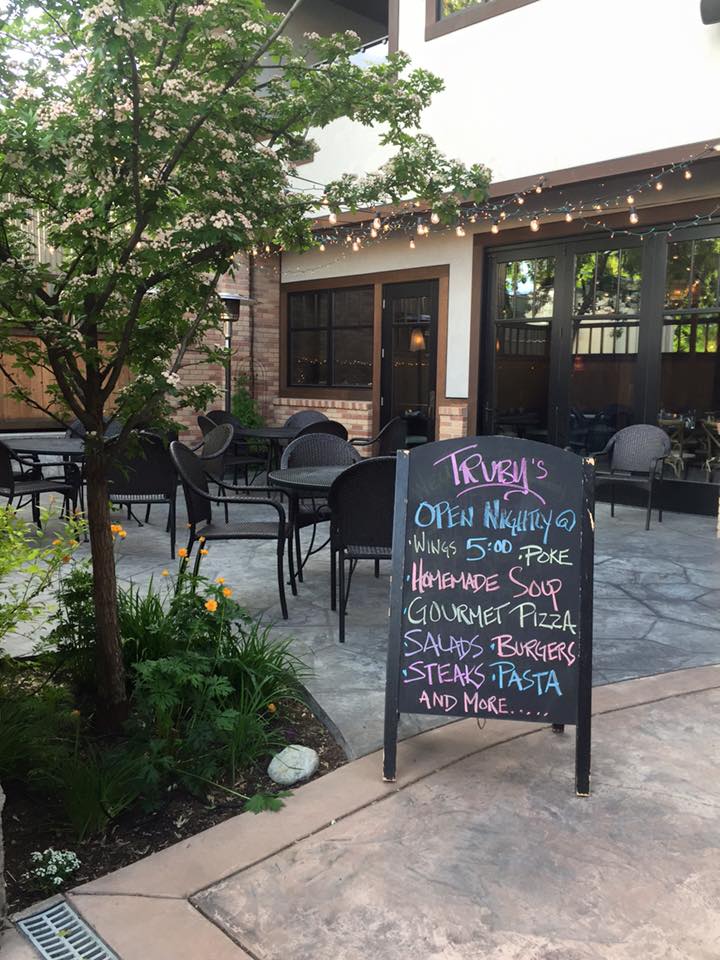 TRUBY'S
OPEN NIGHTLY @
·WINGS 5:00 ·POKE
·HOMEMADE SOUP
·GOURMET PIZZA
·SALADS ·BURGERS
·STEAKS ·PASTA
AND MORE.....